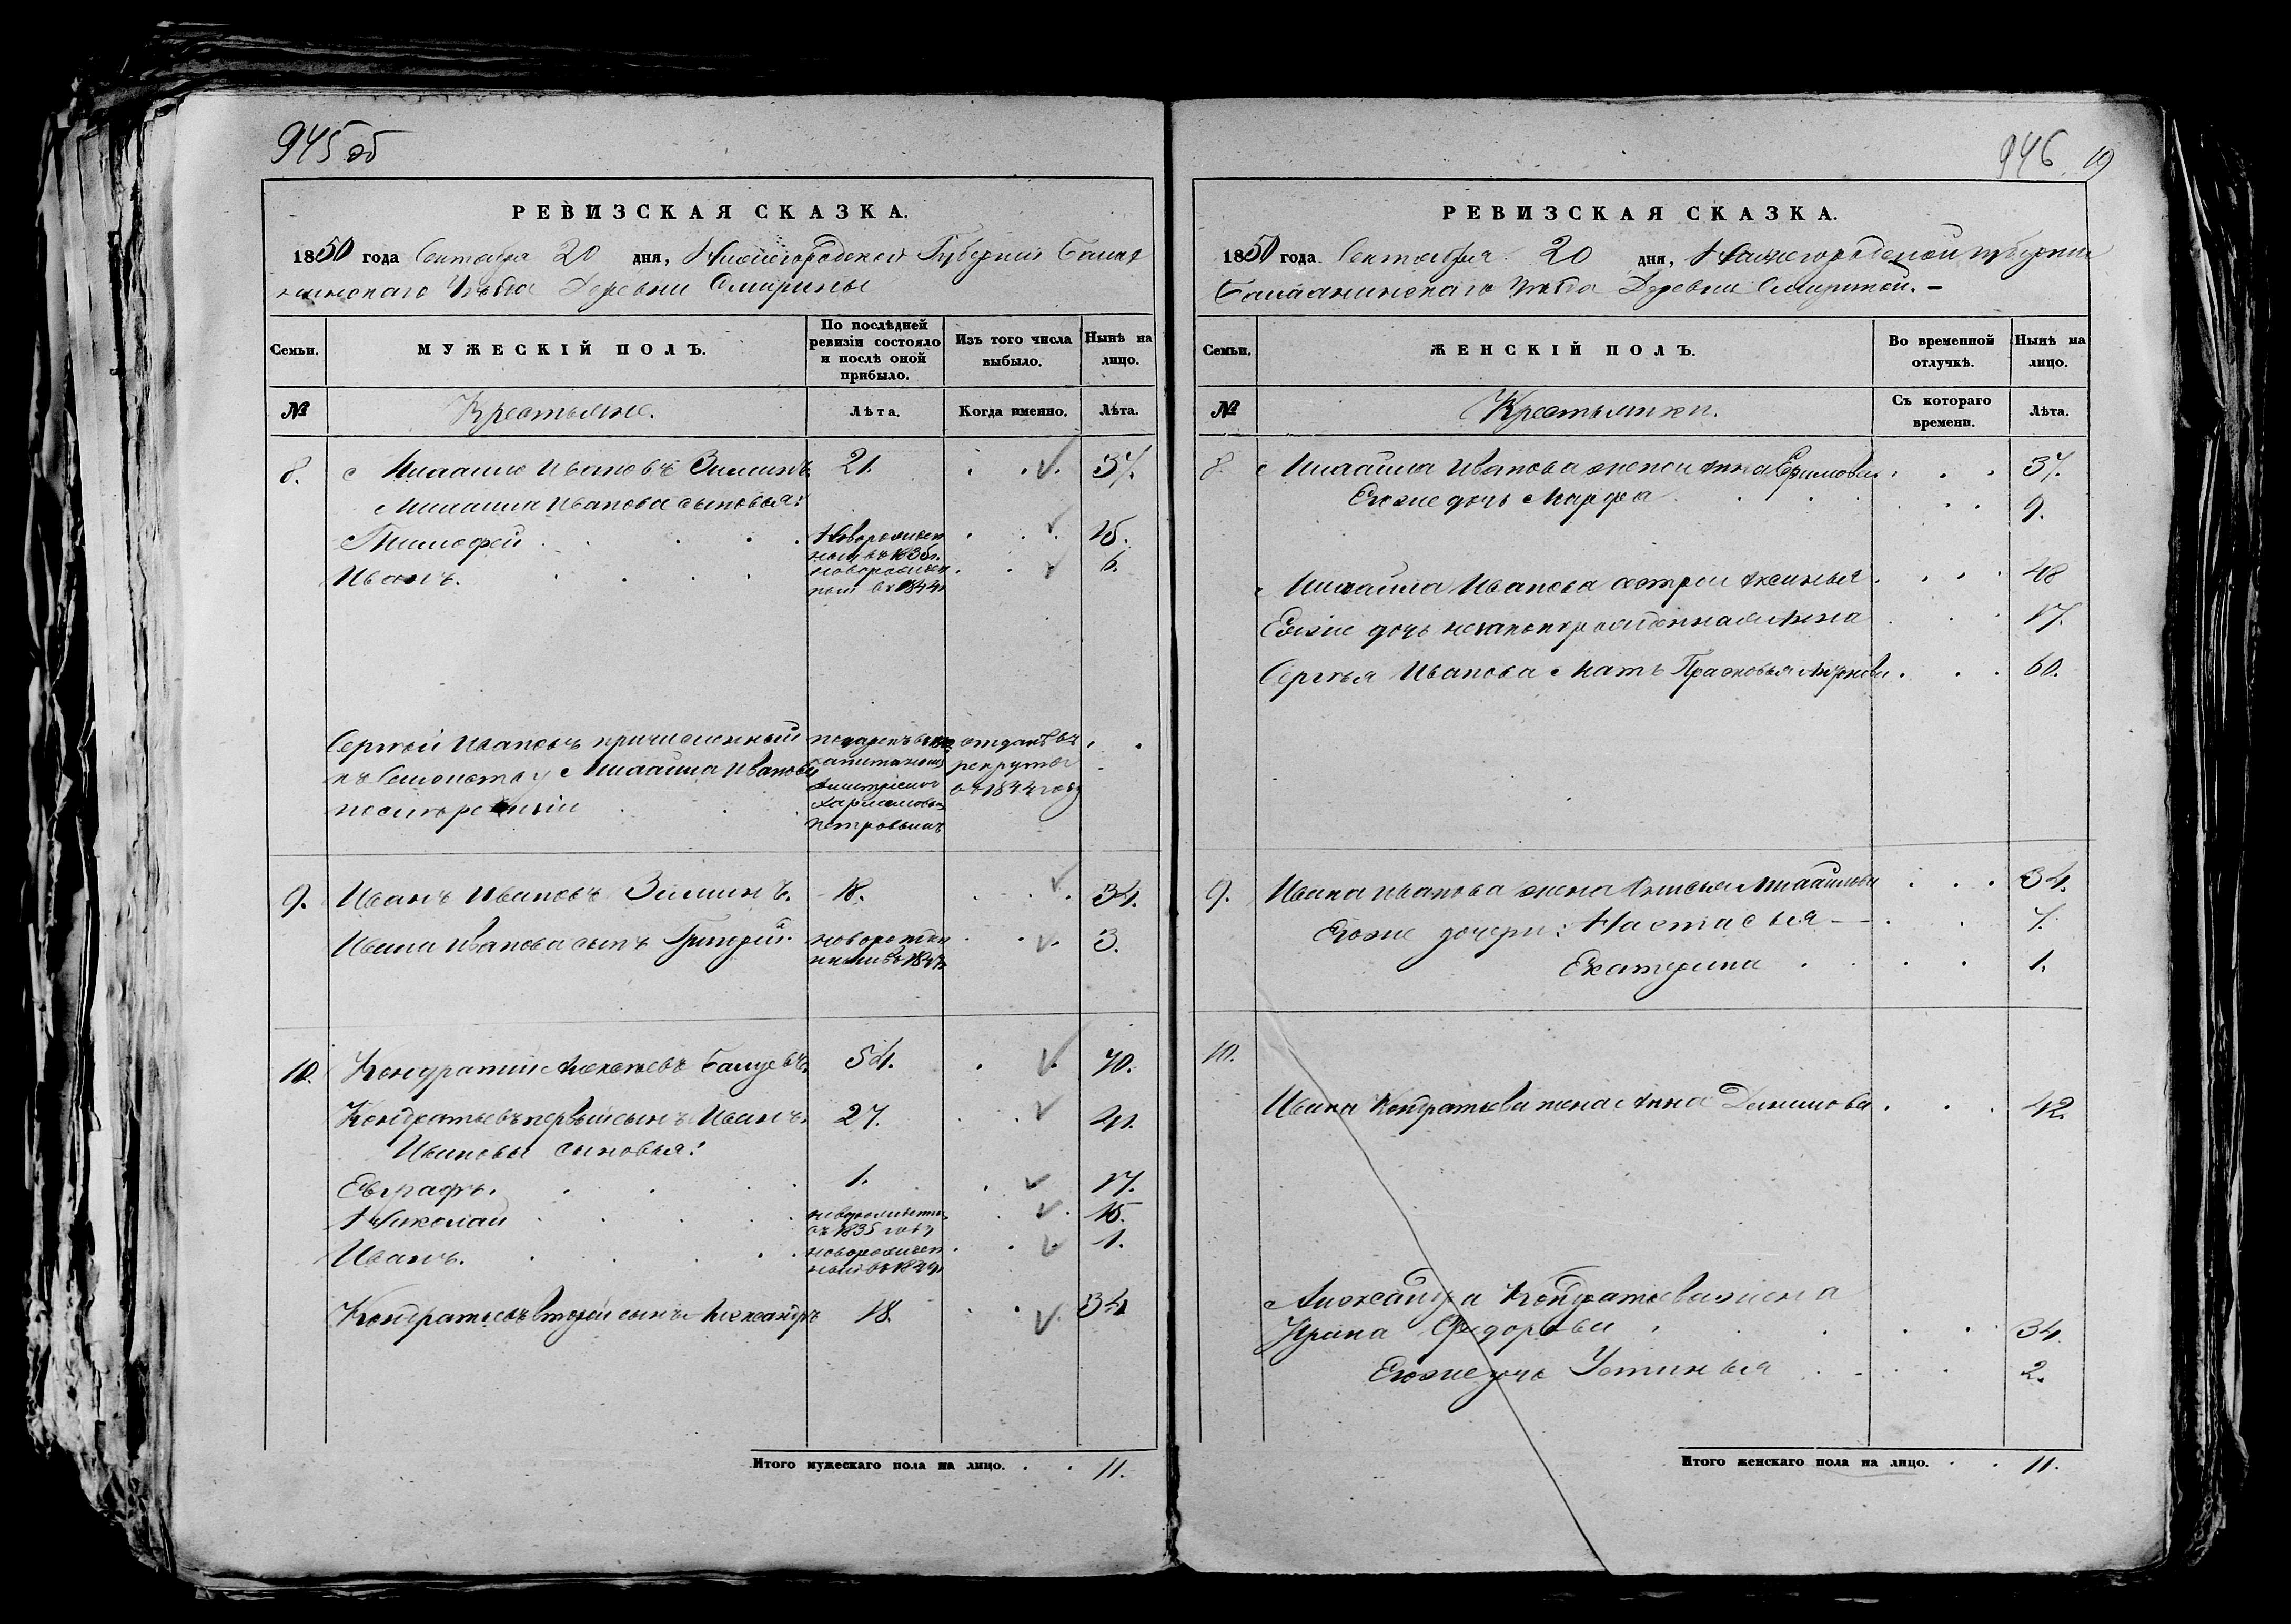 945 об
РЕВИЗСКАЯ СКАЗКА.
1850 года Сентября 20 дня, Нижегородской Губернии Балах
нинскаго Уезда Деревни Смирины
Семьи.
МУЖЕСКІЙ ПОЛЪ.
По послѣдней ревизіи состояло и послѣ оной прибыло.
Изъ того числа выбыло.
Нынѣ на лицо.
№
Крестьяне.
Лѣта.
Когда именно.
Лѣта.
8. Михайло Ивановъ Зиминъ 21. 37.
Михайла Иванова сыновья:
Тимофей новорожден 15.
ный въ 1835г.
Иванъ. новорожден 6.
ный въ 1844
Сергѣй Ивановъ причисленный подаренъ отданъ въ
къ семейству Михайла Иванова капитаномъ рекруты
Дмитріемъ въ 1844 году
после ревизіи Харламовы
Петровымъ
9. Иванъ Ивановъ Зиминъ. 18. 34.
Ивана Иванова сынъ Григорій. новорожден 3.
ный въ 1847
10. Кондратій Алексѣевъ 54. 70.
Кондратьевъ первый сынъ Иванъ. 27.
Ивановы сыновья:
Евграфъ. 1. 17.
Николай новорожден 15.
въ 1835 году
Иванъ. новорожден 1.
ный въ 1849
Кондратьевъ второй сынъ Александръ 18. 34
Итого мужескаго пола на лицо. 11.
946 19
РЕВИЗСКАЯ СКАЗКА.
1850 года Сентября 20 дня, Нижегородской губернии
Балахнинскаго уезда Деревни Смириной.
Семьи.
ЖЕНСКІЙ ПОЛЪ.
Во временной отлучкѣ.
Нынѣ на лицо.
№
Крестьянки.
Съ котораго времени.
Лѣта.
8. Михайла Иванова жена Анна Ефимова 37.
Егоже дочь Марфа 9.
Михайла Иванова сестра Аксинья 48
Еяже дочь незаконнорожденная Анна 17.
Сергѣя Иванова Мать Прасковья 60.
9. Ивана Иванова жена Анисья Михайлова 34.
Егоже дочери: Настасья 7.
Екатерина 1.
10.
Ивана Кондратьева жена Анна Данилова 42.
Александра Кондратьева жена
Ирина Федорова 34.
Егоже дочь Устинья 2.
Итого женскаго пола на лицо. 11.